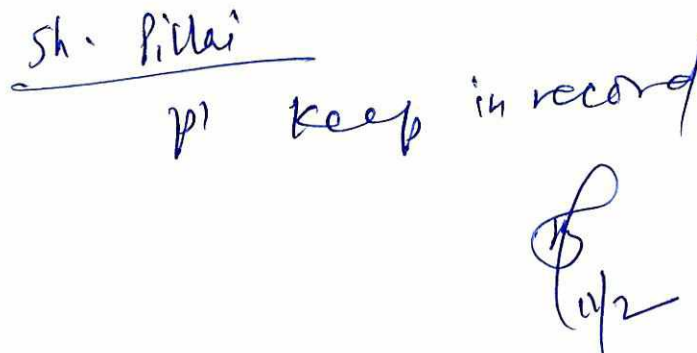 Sh. Pillai
pl keep in record
11/2